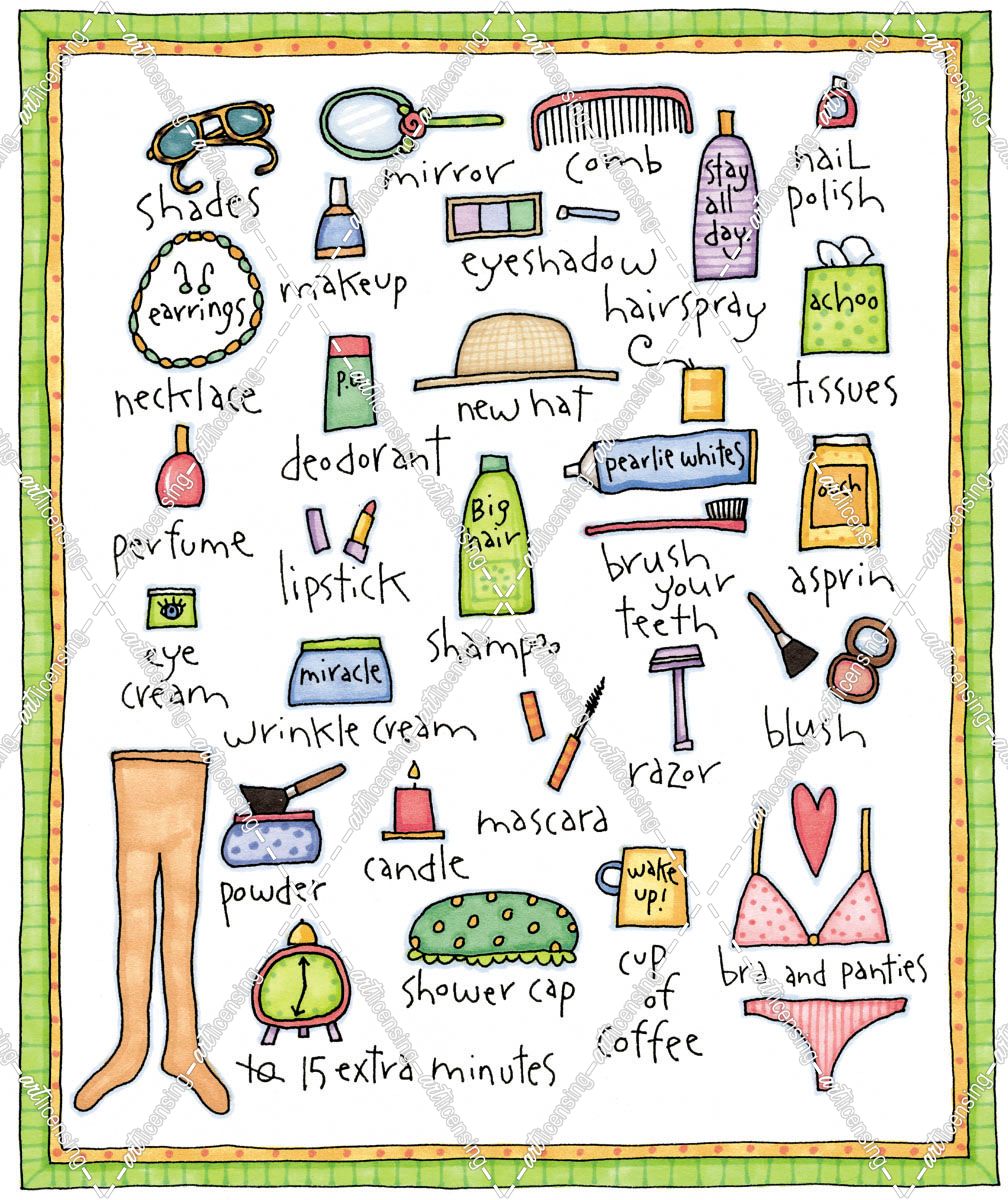 shades
mirror
comb
stay
all
day.
nail
polish
makeup
eyeshadow
hairspray
earrings
necklace
achoo
tissues
new hat
deodorant
pearlie whites
perfume
lipstick
Big
hair
brush
your
teeth
asprin
eye
cream
miracle
wrinkle cream
shampoo
razor
blush
mascara
powder
candle
wake
up!
shower cap
cup
of
coffee
bra and panties
15 extra minutes
artlicensing